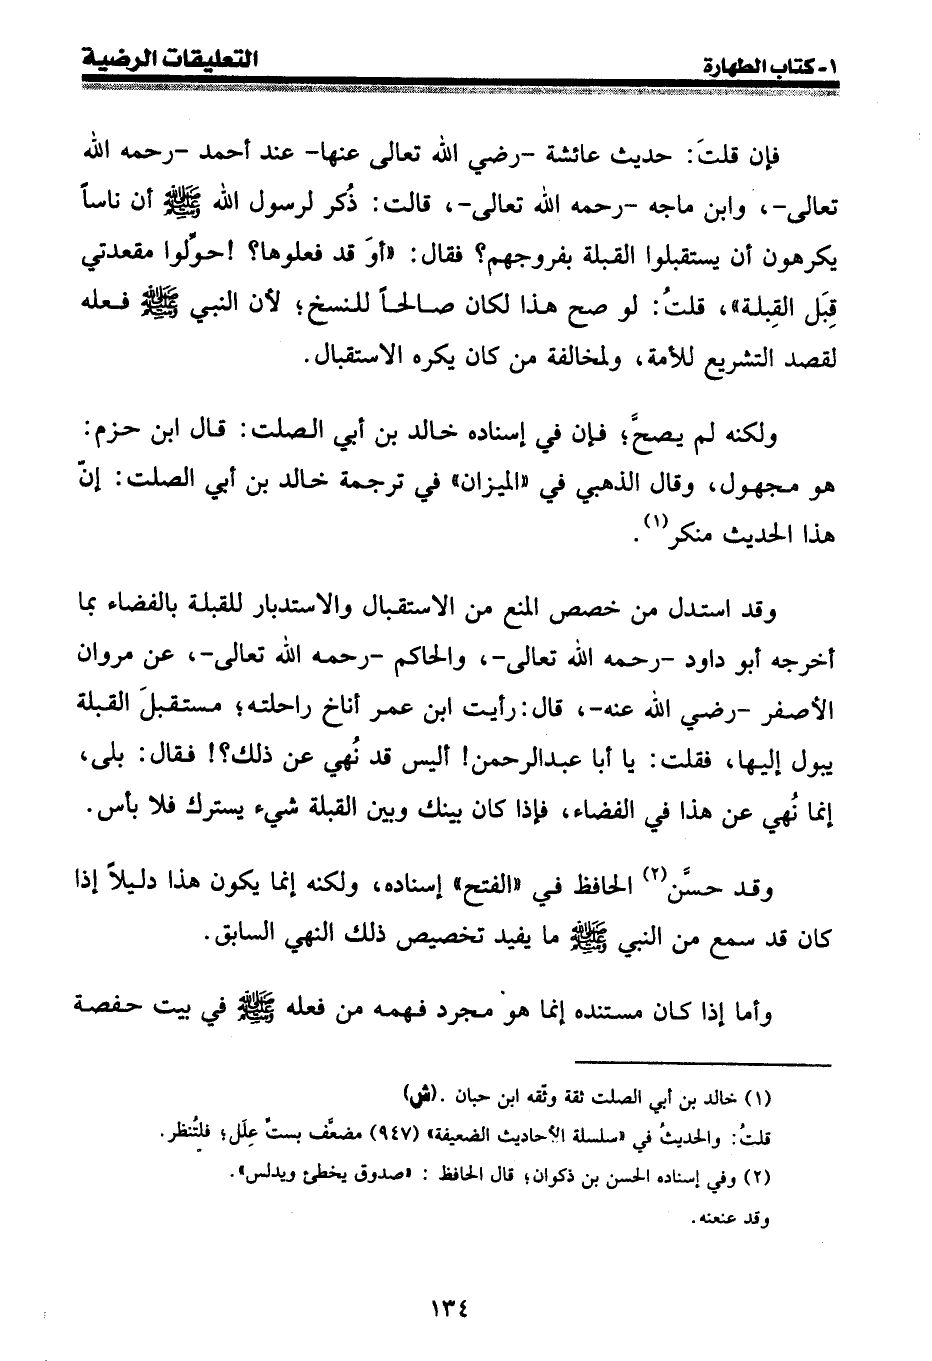 ١- كتاب الطهارة
التعليقات الرضية
فإن قلتَ: حديث عائشة -رضي الله تعالى عنها- عند أحمد -رحمه الله
تعالى-، وابن ماجه -رحمه الله تعالى-، قالت: ذُكر لرسول الله ﷺ أن ناساً
يكرهون أن يستقبلوا القبلة بفروجهم؟ فقال: «أوَ قد فعلوها؟ !حوِّلوا مقعدتي
قِبَل القِبلة»، قلتُ: لو صح هذا لكان صالحاً للنسخ؛ لأن النبي ﷺ فعله
لقصد التشريع للأمة، ولمخالفة من كان يكره الاستقبال.
ولكنه لم يصحَّ؛ فإن في إسناده خالد بن أبي الصلت: قال ابن حزم:
هو مجهول، وقال الذهبي في «الميزان» في ترجمة خالد بن أبي الصلت: إنّ
هذا الحديث منكر(١).
وقد استدل من خصص المنع من الاستقبال والاستدبار للقبلة بالفضاء بما
أخرجه أبو داود -رحمه الله تعالى-، والحاكم -رحمه الله تعالى-، عن مروان
الأصفر -رضي الله عنه-، قال: رأيت ابن عمر أناخ راحلته؛ مستقبلَ القبلة
يبول إليها، فقلت: يا أبا عبدالرحمن! أليس قد نُهي عن ذلك؟! فقال: بلى،
إنما نُهي عن هذا في الفضاء، فإذا كان بينك وبين القبلة شيء يسترك فلا بأس.
وقد حسَّن(٢) الحافظ في «الفتح» إسناده، ولكنه إنما يكون هذا دليلاً إذا
كان قد سمع من النبي ﷺ ما يفيد تخصيص ذلك النهي السابق.
وأما إذا كان مستنده إنما هو مجرد فهمه من فعله ﷺ في بيت حفصة
(١) خالد بن أبي الصلت ثقة وثّقه ابن حبان .(ش)
قلتُ: والحديثُ في «سلسلة الأحاديث الضعيفة» (٩٤٧) مضعَّف بستِّ عِلَل؛ فلتُنظر.
(٢) وفي إسناده الحسن بن ذكوان؛ قال الحافظ : «صدوق يخطئ ويدلس».
وقد عنعنه.
١٣٤